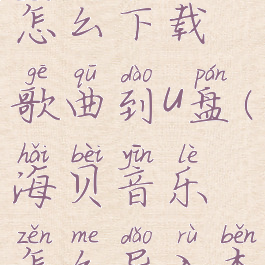 怎么下载
gē qū dào pán
歌曲到U盘(
hǎi bèi yīn lè
海贝音乐
zěn me dǎo rù běn
怎么导入本